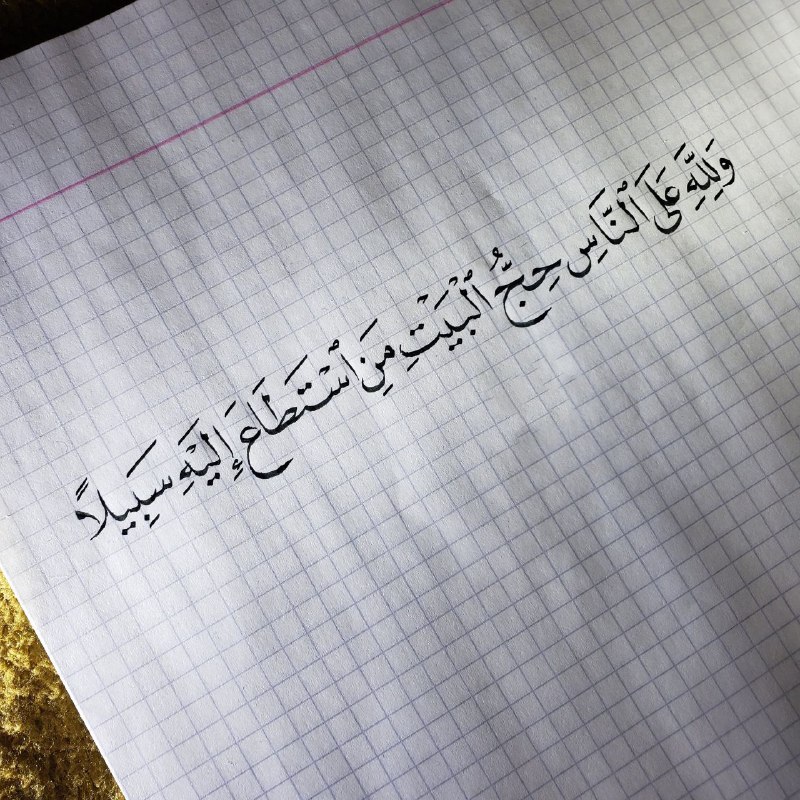 وَلِلَّهِ عَلَى ٱلنَّاسِ حِجُّ ٱلْبَيْتِ مَنِ ٱسْتَطَاعَ إِلَيْهِ سَبِيلاً